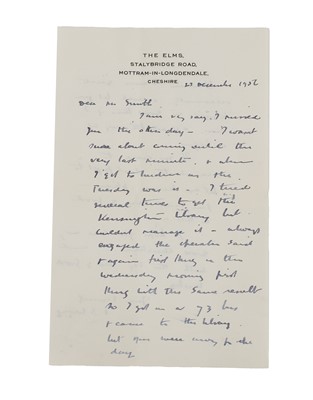 THE ELMS,
STALYBRIDGE ROAD,
MOTTRAM-IN-LONGDENDALE,
CHESHIRE
December
Dear Mr Smith.
I am very sorry I missed
you the other day — I wasn't
sure about coming until the
very last minute, & when
I got to London on the
Tuesday was it — I tried
several times to get the
Kensington Library but
couldn't manage it — always
engaged the operator said
& again first thing on the
Wednesday morning first
thing with the same result
so I got on a 73 bus
& came to the library.
but you were away for the
day